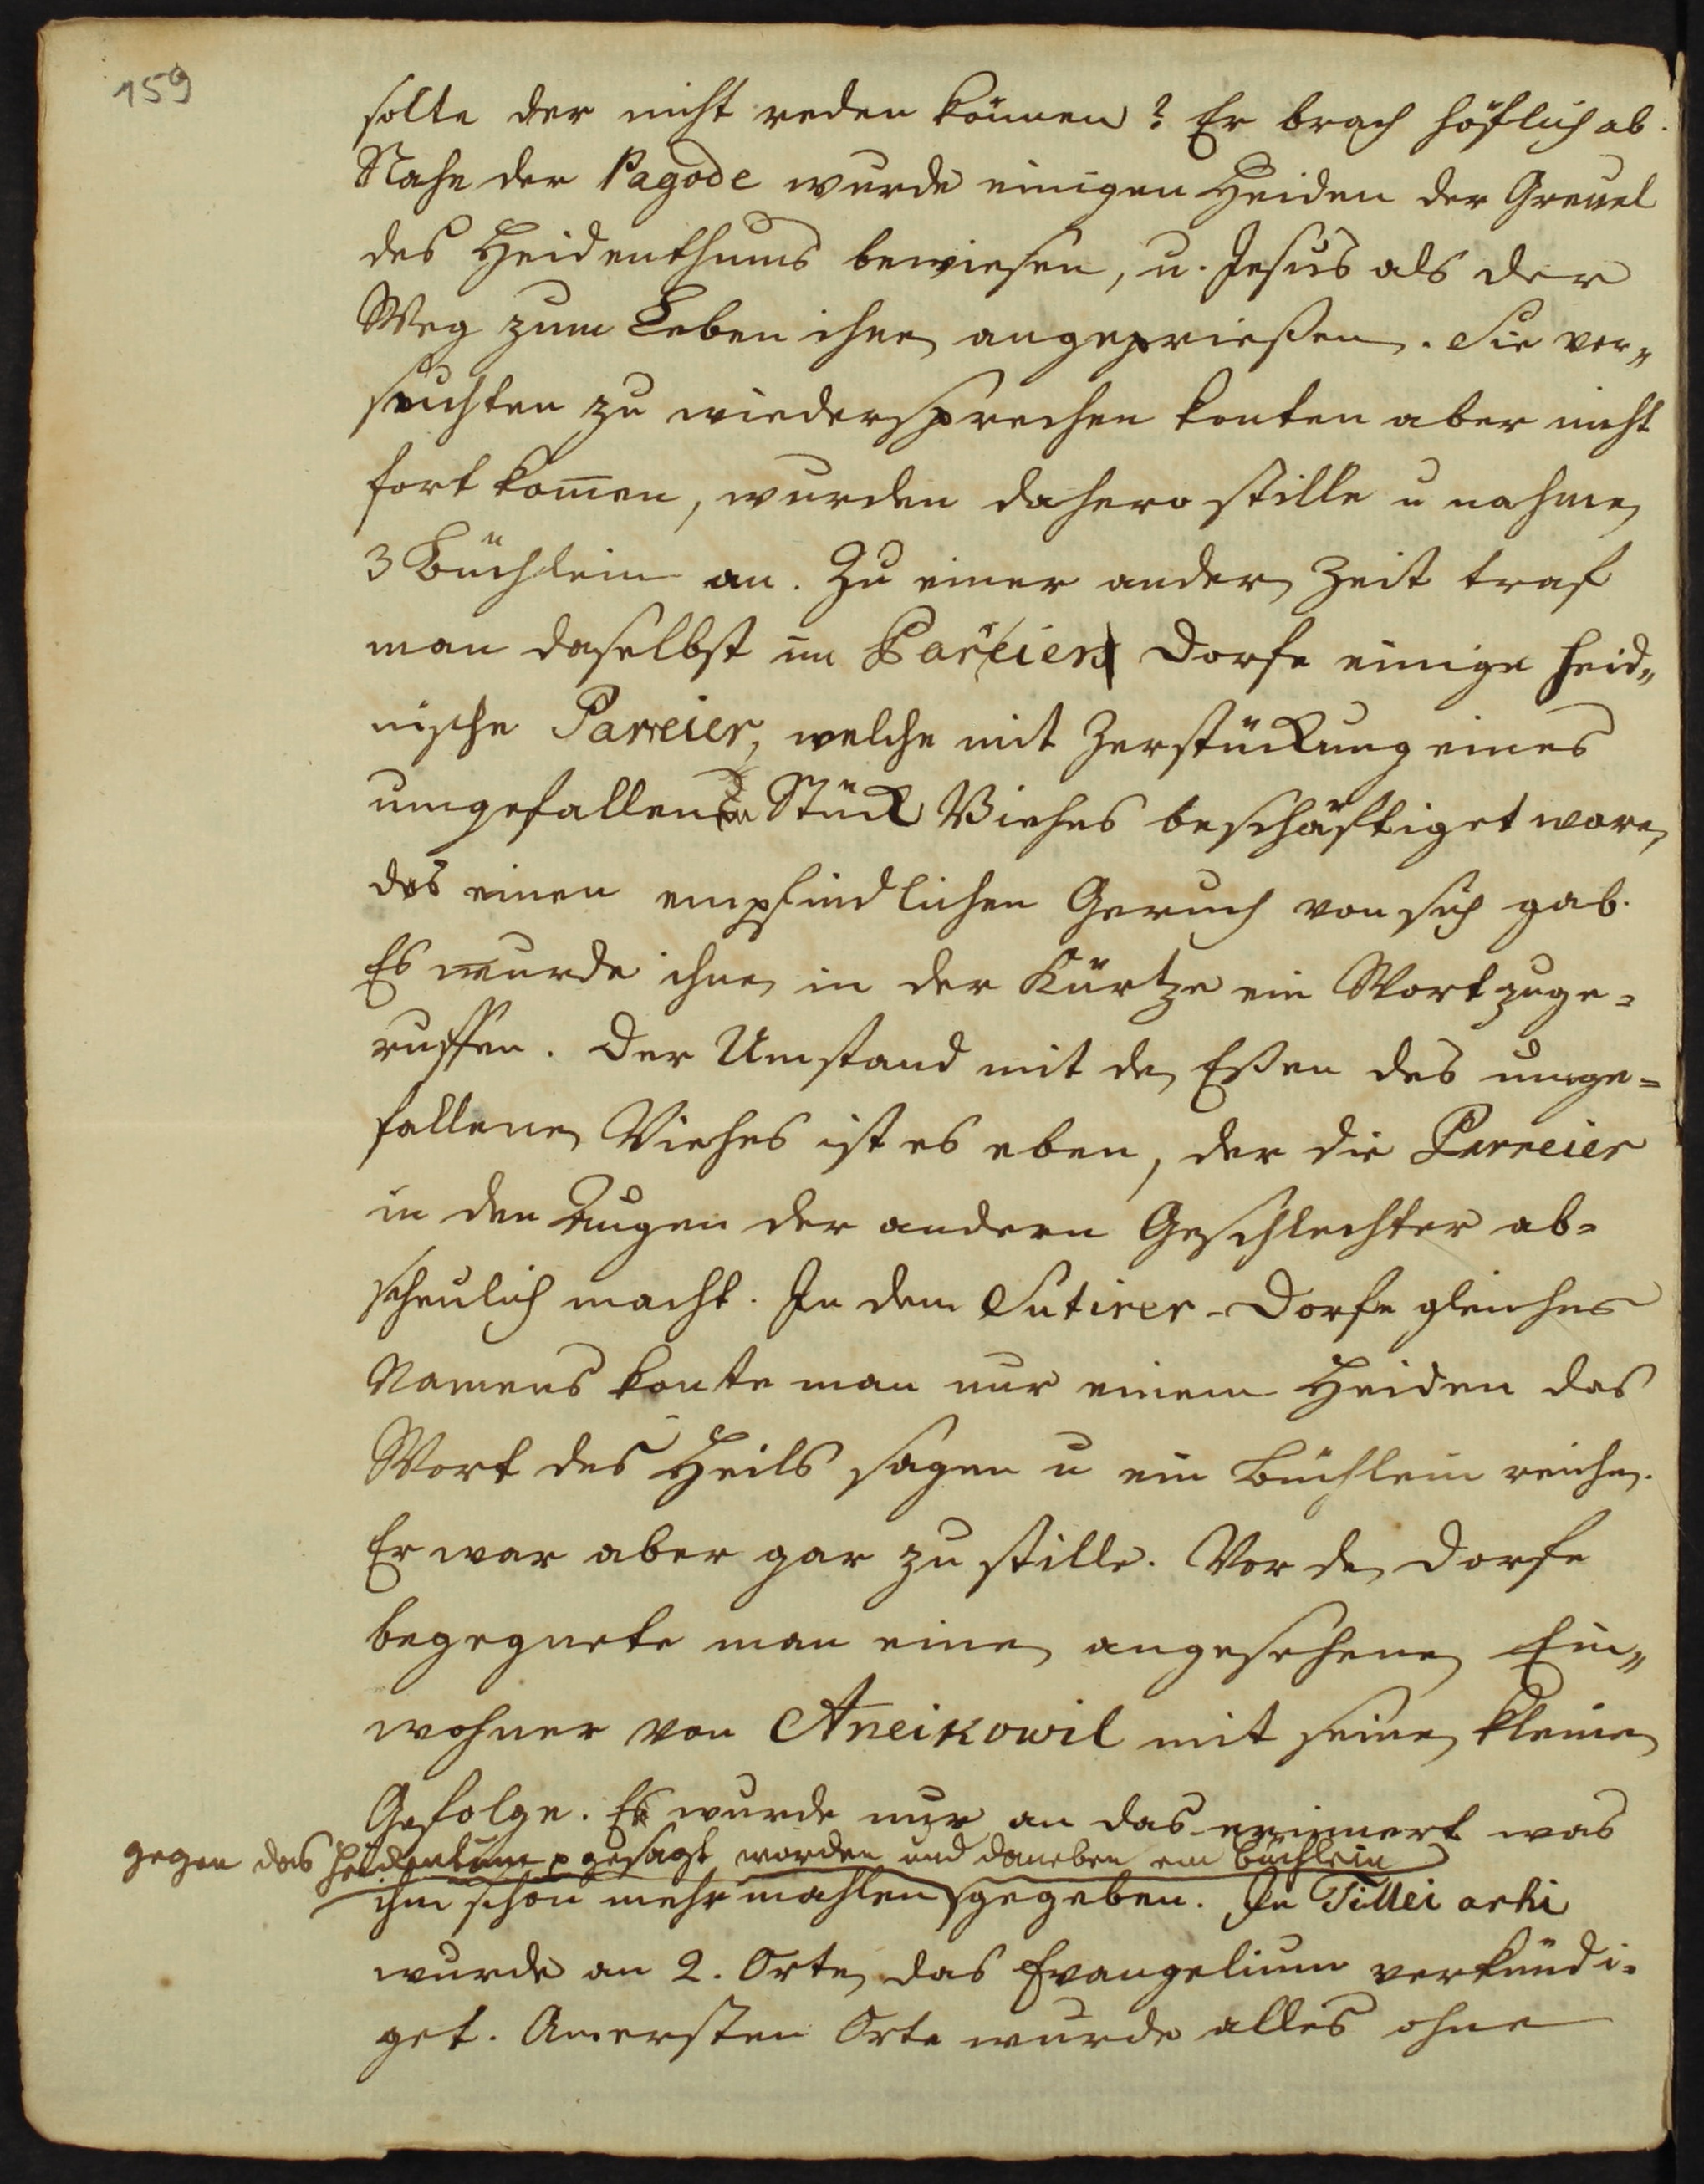 159
solte der nicht reden können? Er brach höflich ab.
Nahe der Pagode wurde einigen Heiden der Greuel
des Heidenthums bewiesen, u. Jesus als der
Weg zum Leben ihnen angeprießen. Sie ver„
suchten zu wiedersprechen konten aber nicht
fort kom̄en, wurden dahero stille u nahmen
3 Büchlein an. Zu einer andern Zeit traf
man daselbst im Parreier Dorfe einige heid„
nische Parreier, welche mit Zerstückung eines
umgefallenen Stück Viehes beschäftiget waren,
das einen empfindlichen Geruch von sich gab.
Es wurde ihnen in der Kürtze ein Wort zuge=
ruffen. Der Umstand mit dem Eßen des umge=
fallenen Viehes ist es eben, der die Parreier
in den Augen der andern Geschlechter ab=
scheulich macht. In dem Sutirer-Dorfe gleiches
Namens konte man nur einem Heiden das
Wort des Heils sagen u ein Büchlein reichen.
Er war aber gar zu stille. Vor dem Dorfe
begegnete man einem angesehenen Ein„
wohner von Aneikowil mit seinem kleinen
Gefolge. Es wurde nur an das erinnert was
ihm schon mehrmahlen gegen das Heidentum p gesagt worden und daneben ein Büchlein
gegeben. In Tillei arhi
wurde an 2. Orten das Evangelium verkündi=
get. Am ersten Orte wurde alles ohne